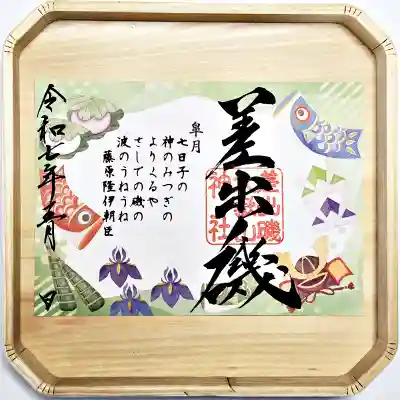 差出ノ磯
皐月
七日子の
神のみつぎの
よりくるや
さしでの磯の
波のうねうね
藤原隆伊朝臣
令和七年五月 日